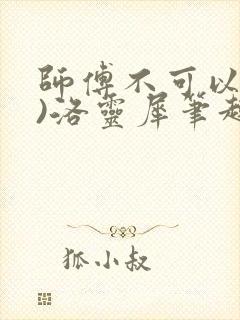 師傅不可以
)洛靈犀筆趣
狐小叔